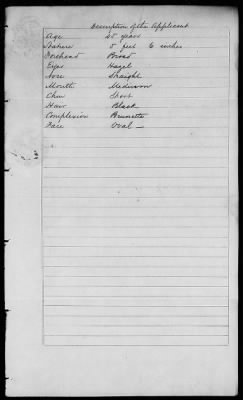 Description of the Applicant
Age 25 years
Stature 5 feet 6 inches
Forehead Broad
Eyes Hazel
Nose Straight
Mouth Medium
Chin Short
Hair Black
Complexion Brunette
Face Oval —